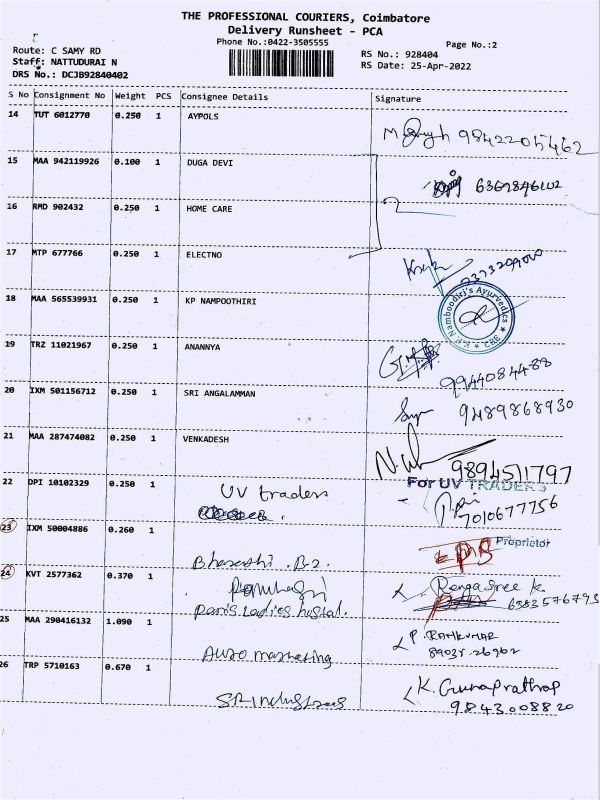 THE PROFESSIONAL COURIERS, Coimbatore
Delivery Runsheet - PCA
Phone No.:0422-3505555
Page No.:2
Route: C SAMY RD
Staff: NATTUDURAI N
DRS No.: DCJB92840402
RS No.: 928404
RS Date: 25-Apr-2022
S No Consignment No Weight PCS Consignee Details Signature
14 TUT 6012770 0.250 1 AYPOLS
9842205462
15 MAA 942119926 0.100 1 DUGA DEVI
6369846102
16 RMD 902432 0.250 1 HOME CARE
17 MTP 677766 0.250 1 ELECTNO
18 MAA 565539931 0.250 1 KP NAMPOOTHIRI
Namboodiri's Ayurvedics
CBE
19 TRZ 11021967 0.250 1 ANANNYA
9944084488
20 IXM 501156712 0.250 1 SRI ANGALAMMAN
9489868930
21 MAA 287474082 0.250 1 VENKADESH
9894511797
22 DPI 10102329 0.250 1 UV traders
For UV TRADERS
7010677756
Proprietor
23 IXM 50004886 0.260 1
24 KVT 2577362 0.370 1
Paris Ladies hostal.
Renga Sree K.
6383576793
25 MAA 290416132 1.090 1
P. RAMKUMAR
89035.26962
26 TRP 5710163 0.670 1
K. Gunaprathap
9843008820